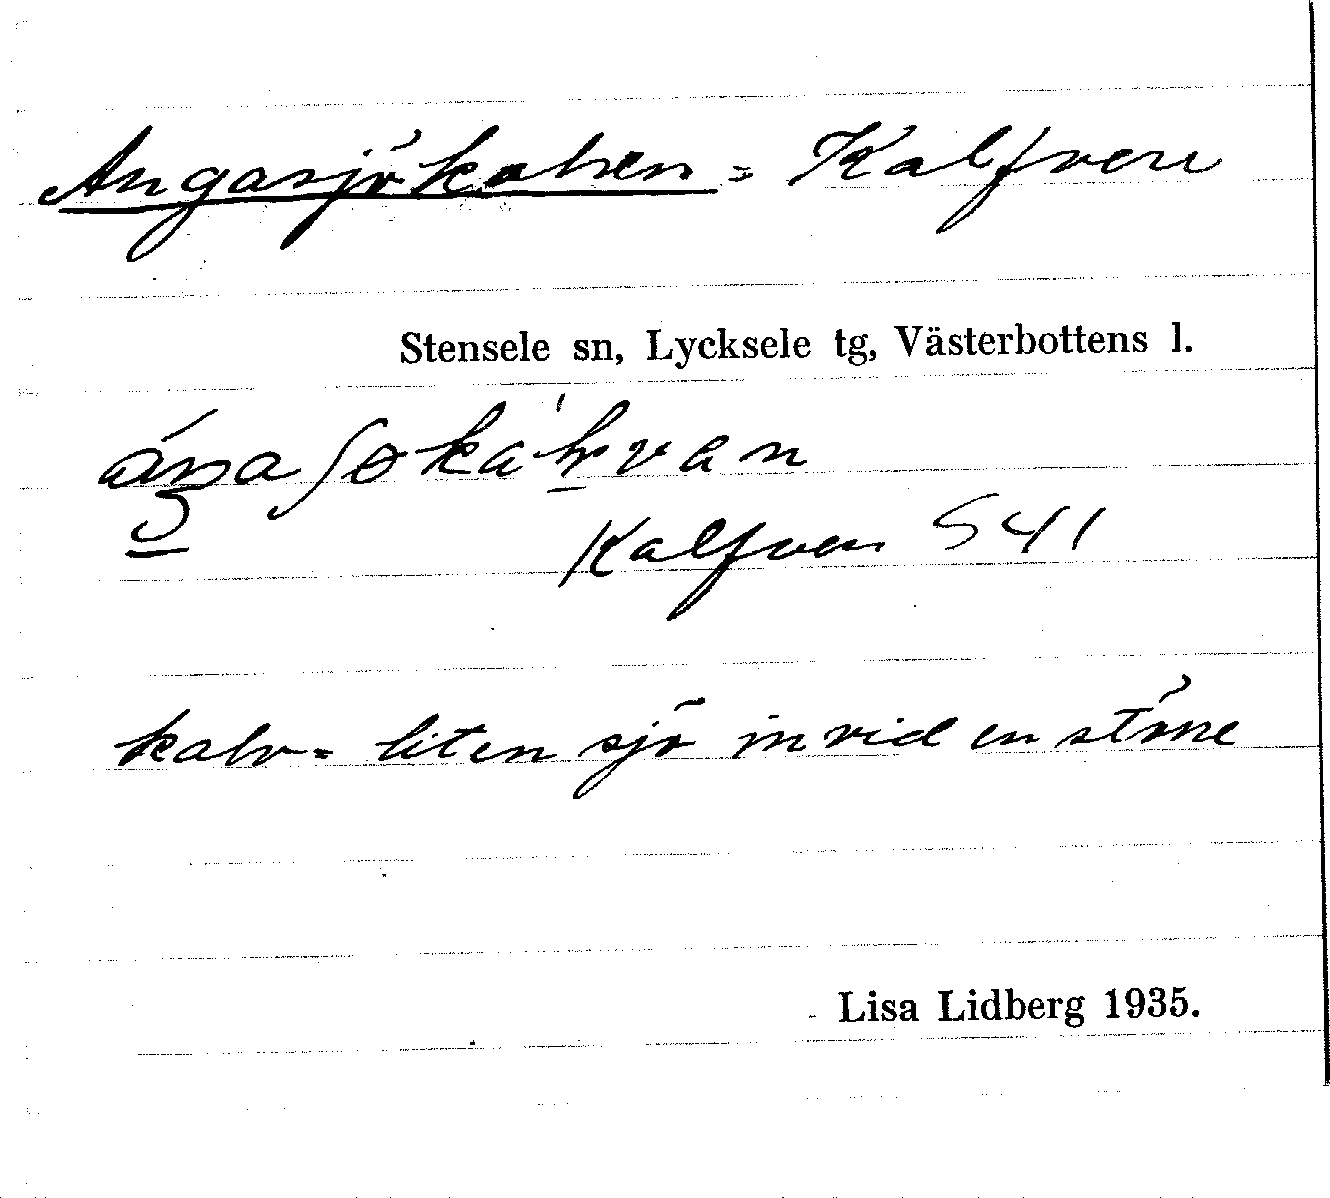 Angasjökalven = Kalfven
Stensele sn, Lycksele tg, Västerbottens l.
Kalfven S 41
kalv = liten sjö invid en större
Lisa Lidberg 1935.